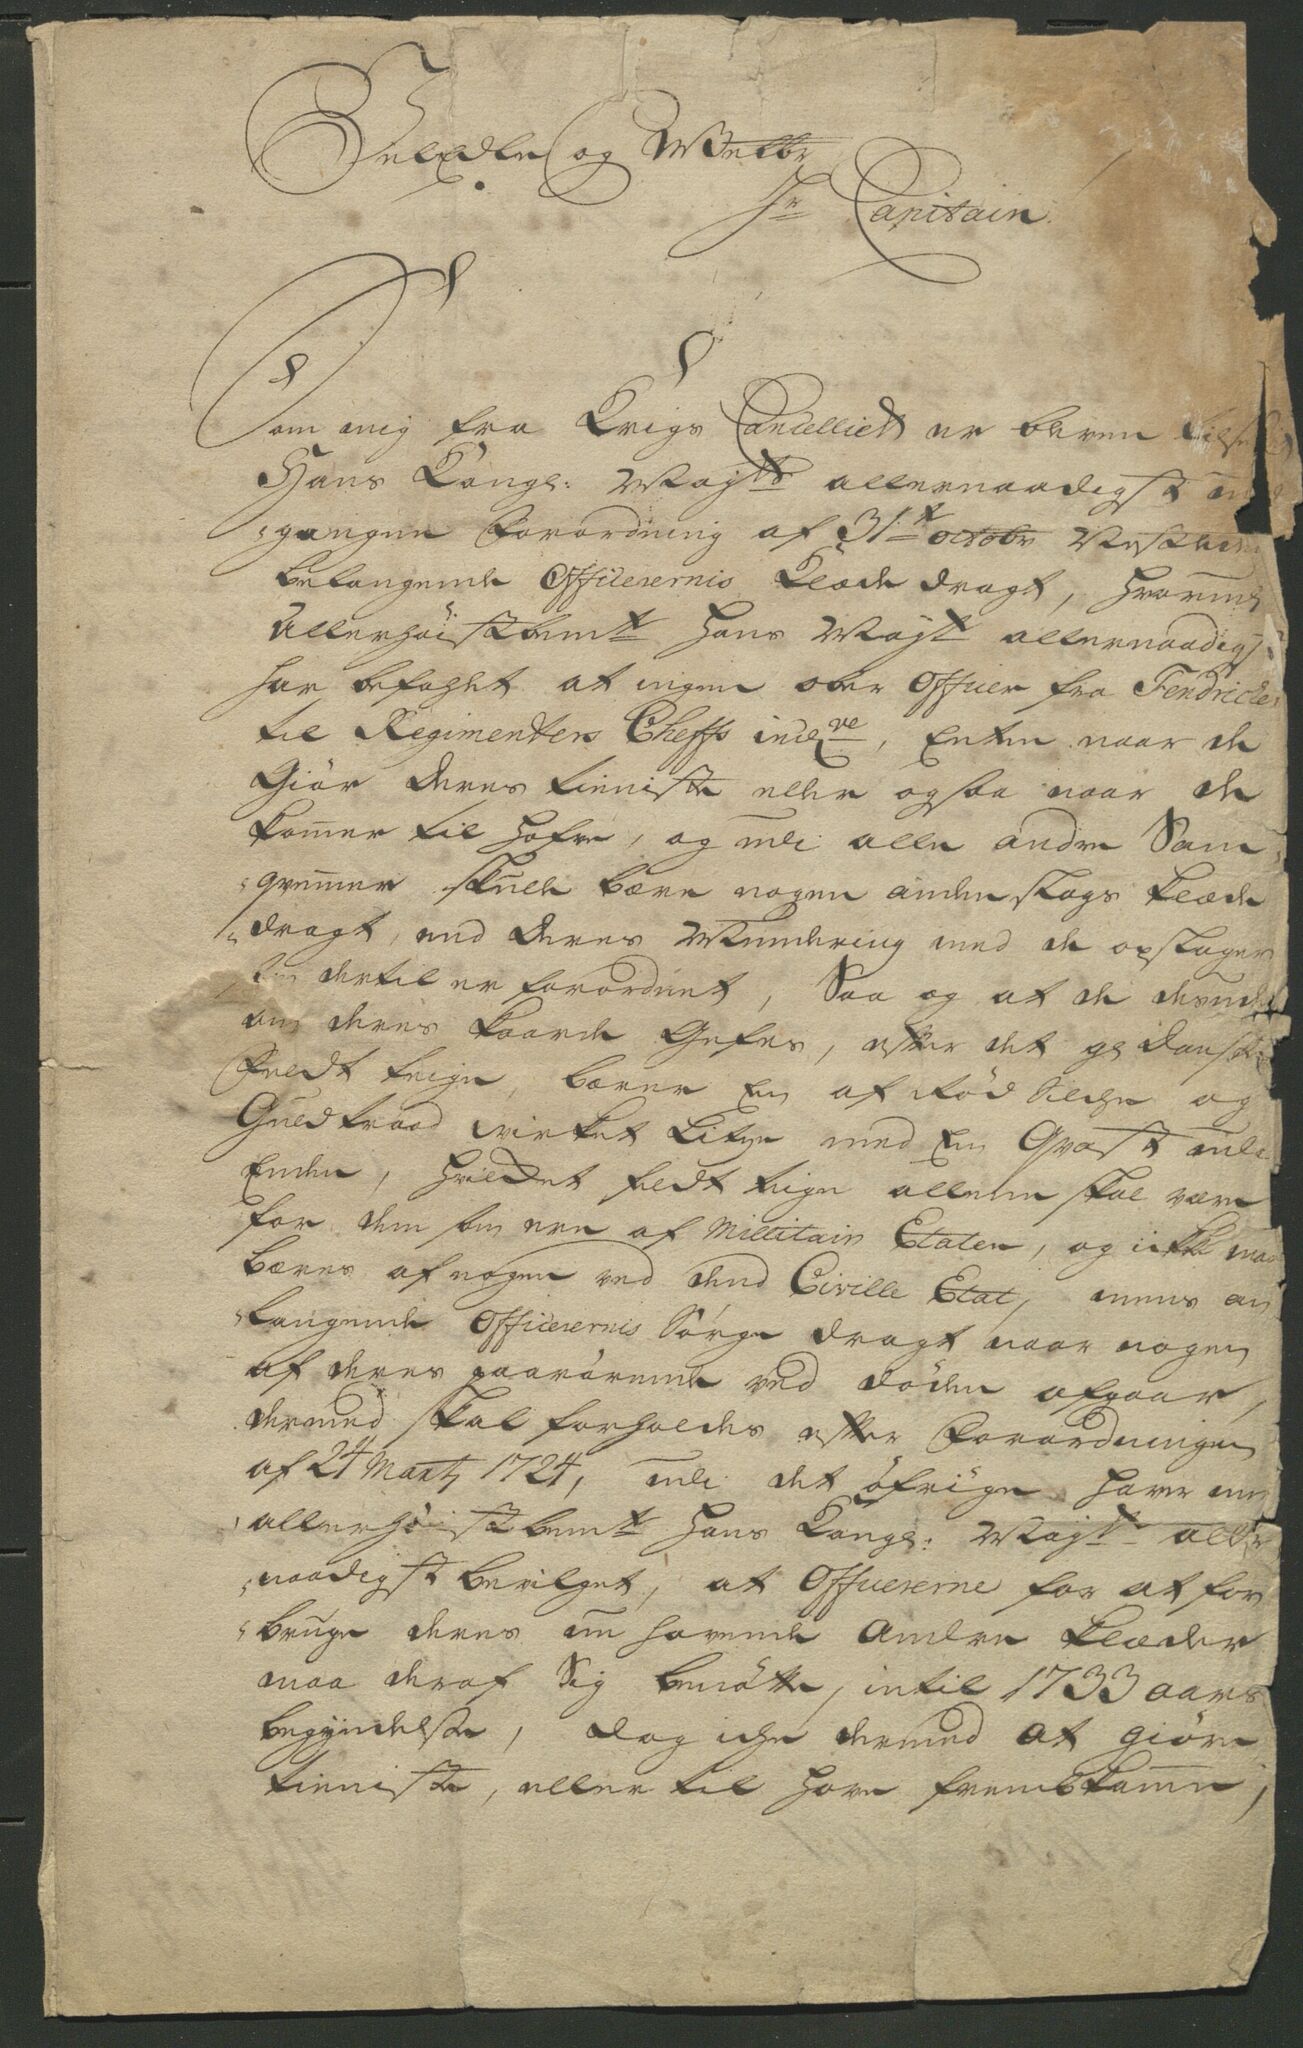 Velædle og Welbr
Hr Capitain.
Som mig fra Krigs Cancelliet er bleven tilse
Hans Kongl: Mayts allernaadigst ud
gangen Forordning af 31te octobr Nestleden
belangende Officerernis Klæde dragt, hvorved
Allerhöistbemte hans Mayt allernaadigst
har befahlet at ingen ober Officer fra Fendricker
til Regimenters Cheffs inclve, Enten naar de
Giör deres tieniste eller ogsaa naar de
kommer til hofve, og udi alle andre Sam
qvemmer skulle bære nogen anden slags klæde
dragt, end deres Mundering med de opslager
som dertil er forordnet, Saa og at de desuden
om deres kaarde Gefes, efter det gl danske
Feldt teign, bærer En af Röd Silche og
Guldtraad virket Litze med En Qvast udi
Enden, hvilcket feldt teign allene skal være
for dem som ere af Militair Etaten, og icke maa
bæres af nogen ved dend Civille Etat, mens an
langende Officerernis Sörge dragt naar nogen
af deres paarörende ved döden afgaar,
dermed skal forholdes efter Forordningen
af 24 Marty 1724, udi det öfrige haver
allerhöistbemte Hans Kongl: Mayt aller
naadigst bevilget, at Officererne for at for
bruge deres nu havende Andre klæder
maa deraf Sig benötte, intil 1733 aars
begyndelse, dog iche dermed at giöre
tieniste, eller til hove fremkomme,